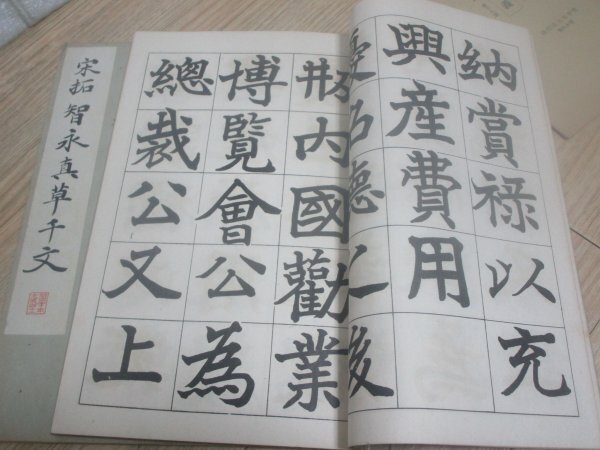 納賞禄以充
興産費用
内國勸業
博覽會公為
總裁公又上
宋拓智永真草千文